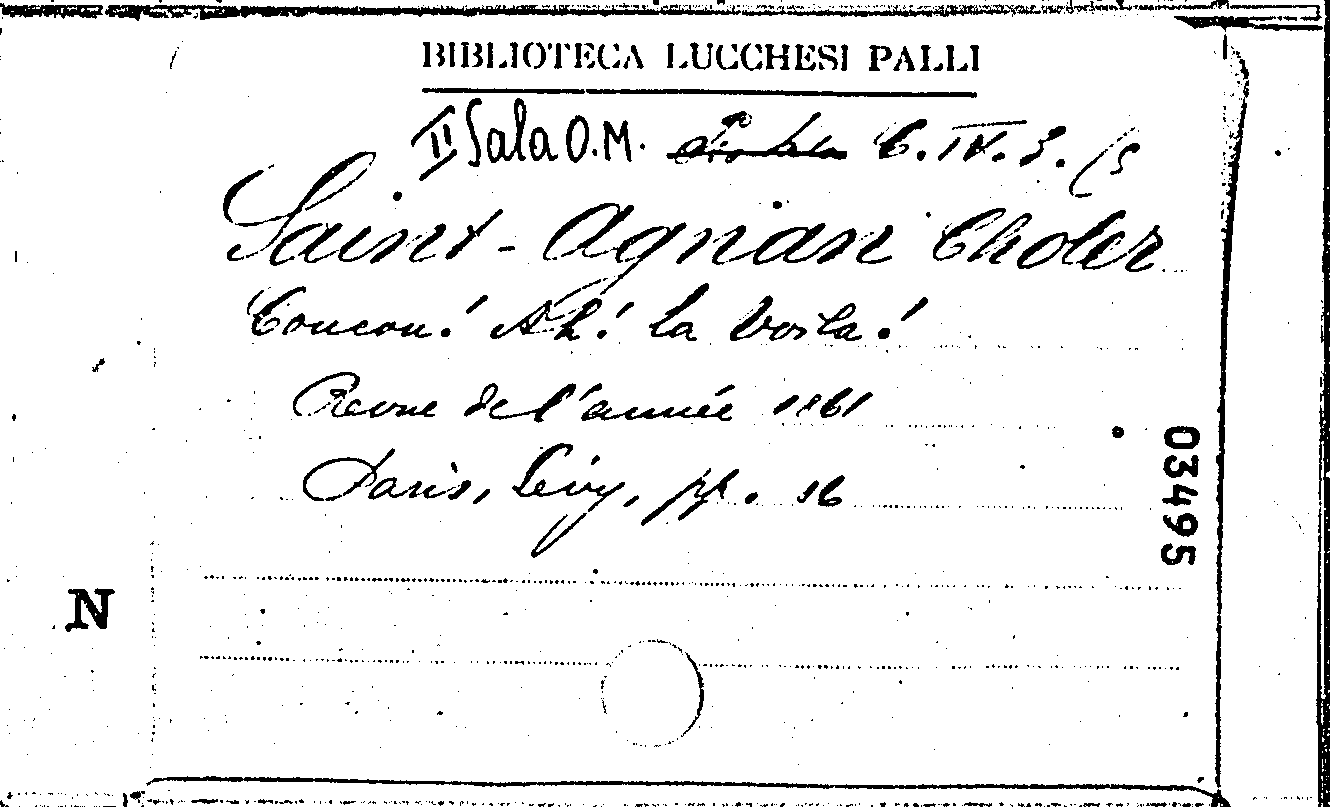 BIBLIOTECA LUCCHESI PALLI
II Sala O.M. C. IV. 3. /5
Saint-Agnan Choler
Coucou! Ah! la voila!
Revue de l'année 1861
Paris, Lévy, pp. 16
03495
N